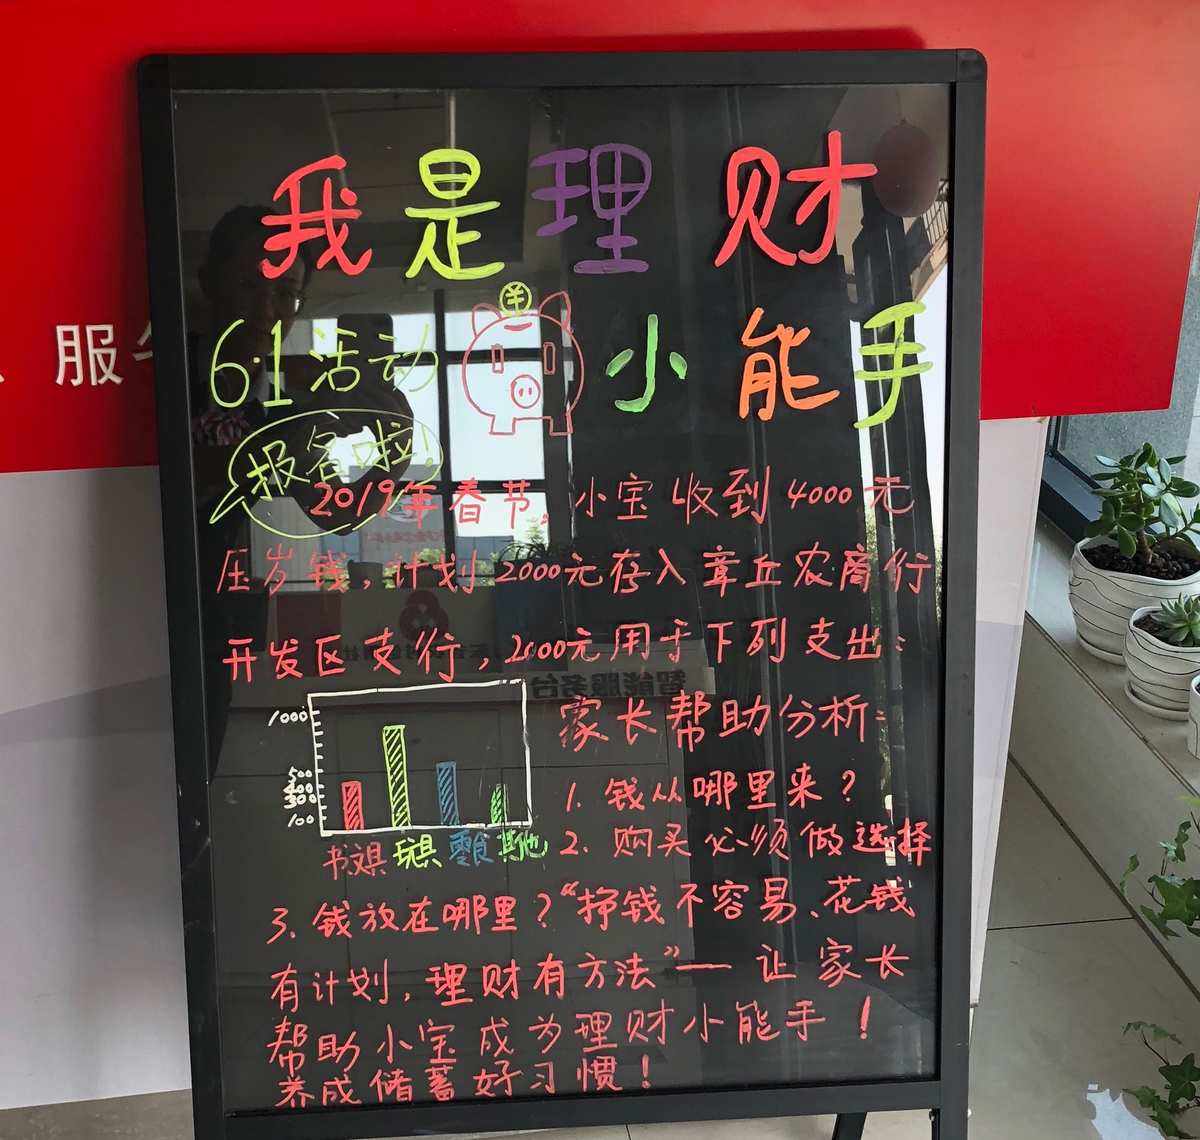 我是理财
6·1活动 小能手
报名啦!
2019年春节,小宝收到4000元
压岁钱,计划2000元存入章丘农商行
开发区支行,2000元用于下列支出:
家长帮助分析:
1000
500
400
300
100
书 玩具 零食 其他
1. 钱从哪里来?
2. 购买必须做选择
3、钱放在哪里?“挣钱不容易、花钱
有计划,理财有方法”— 让家长
帮助小宝成为理财小能手!
养成储蓄好习惯!
服
智能服务台